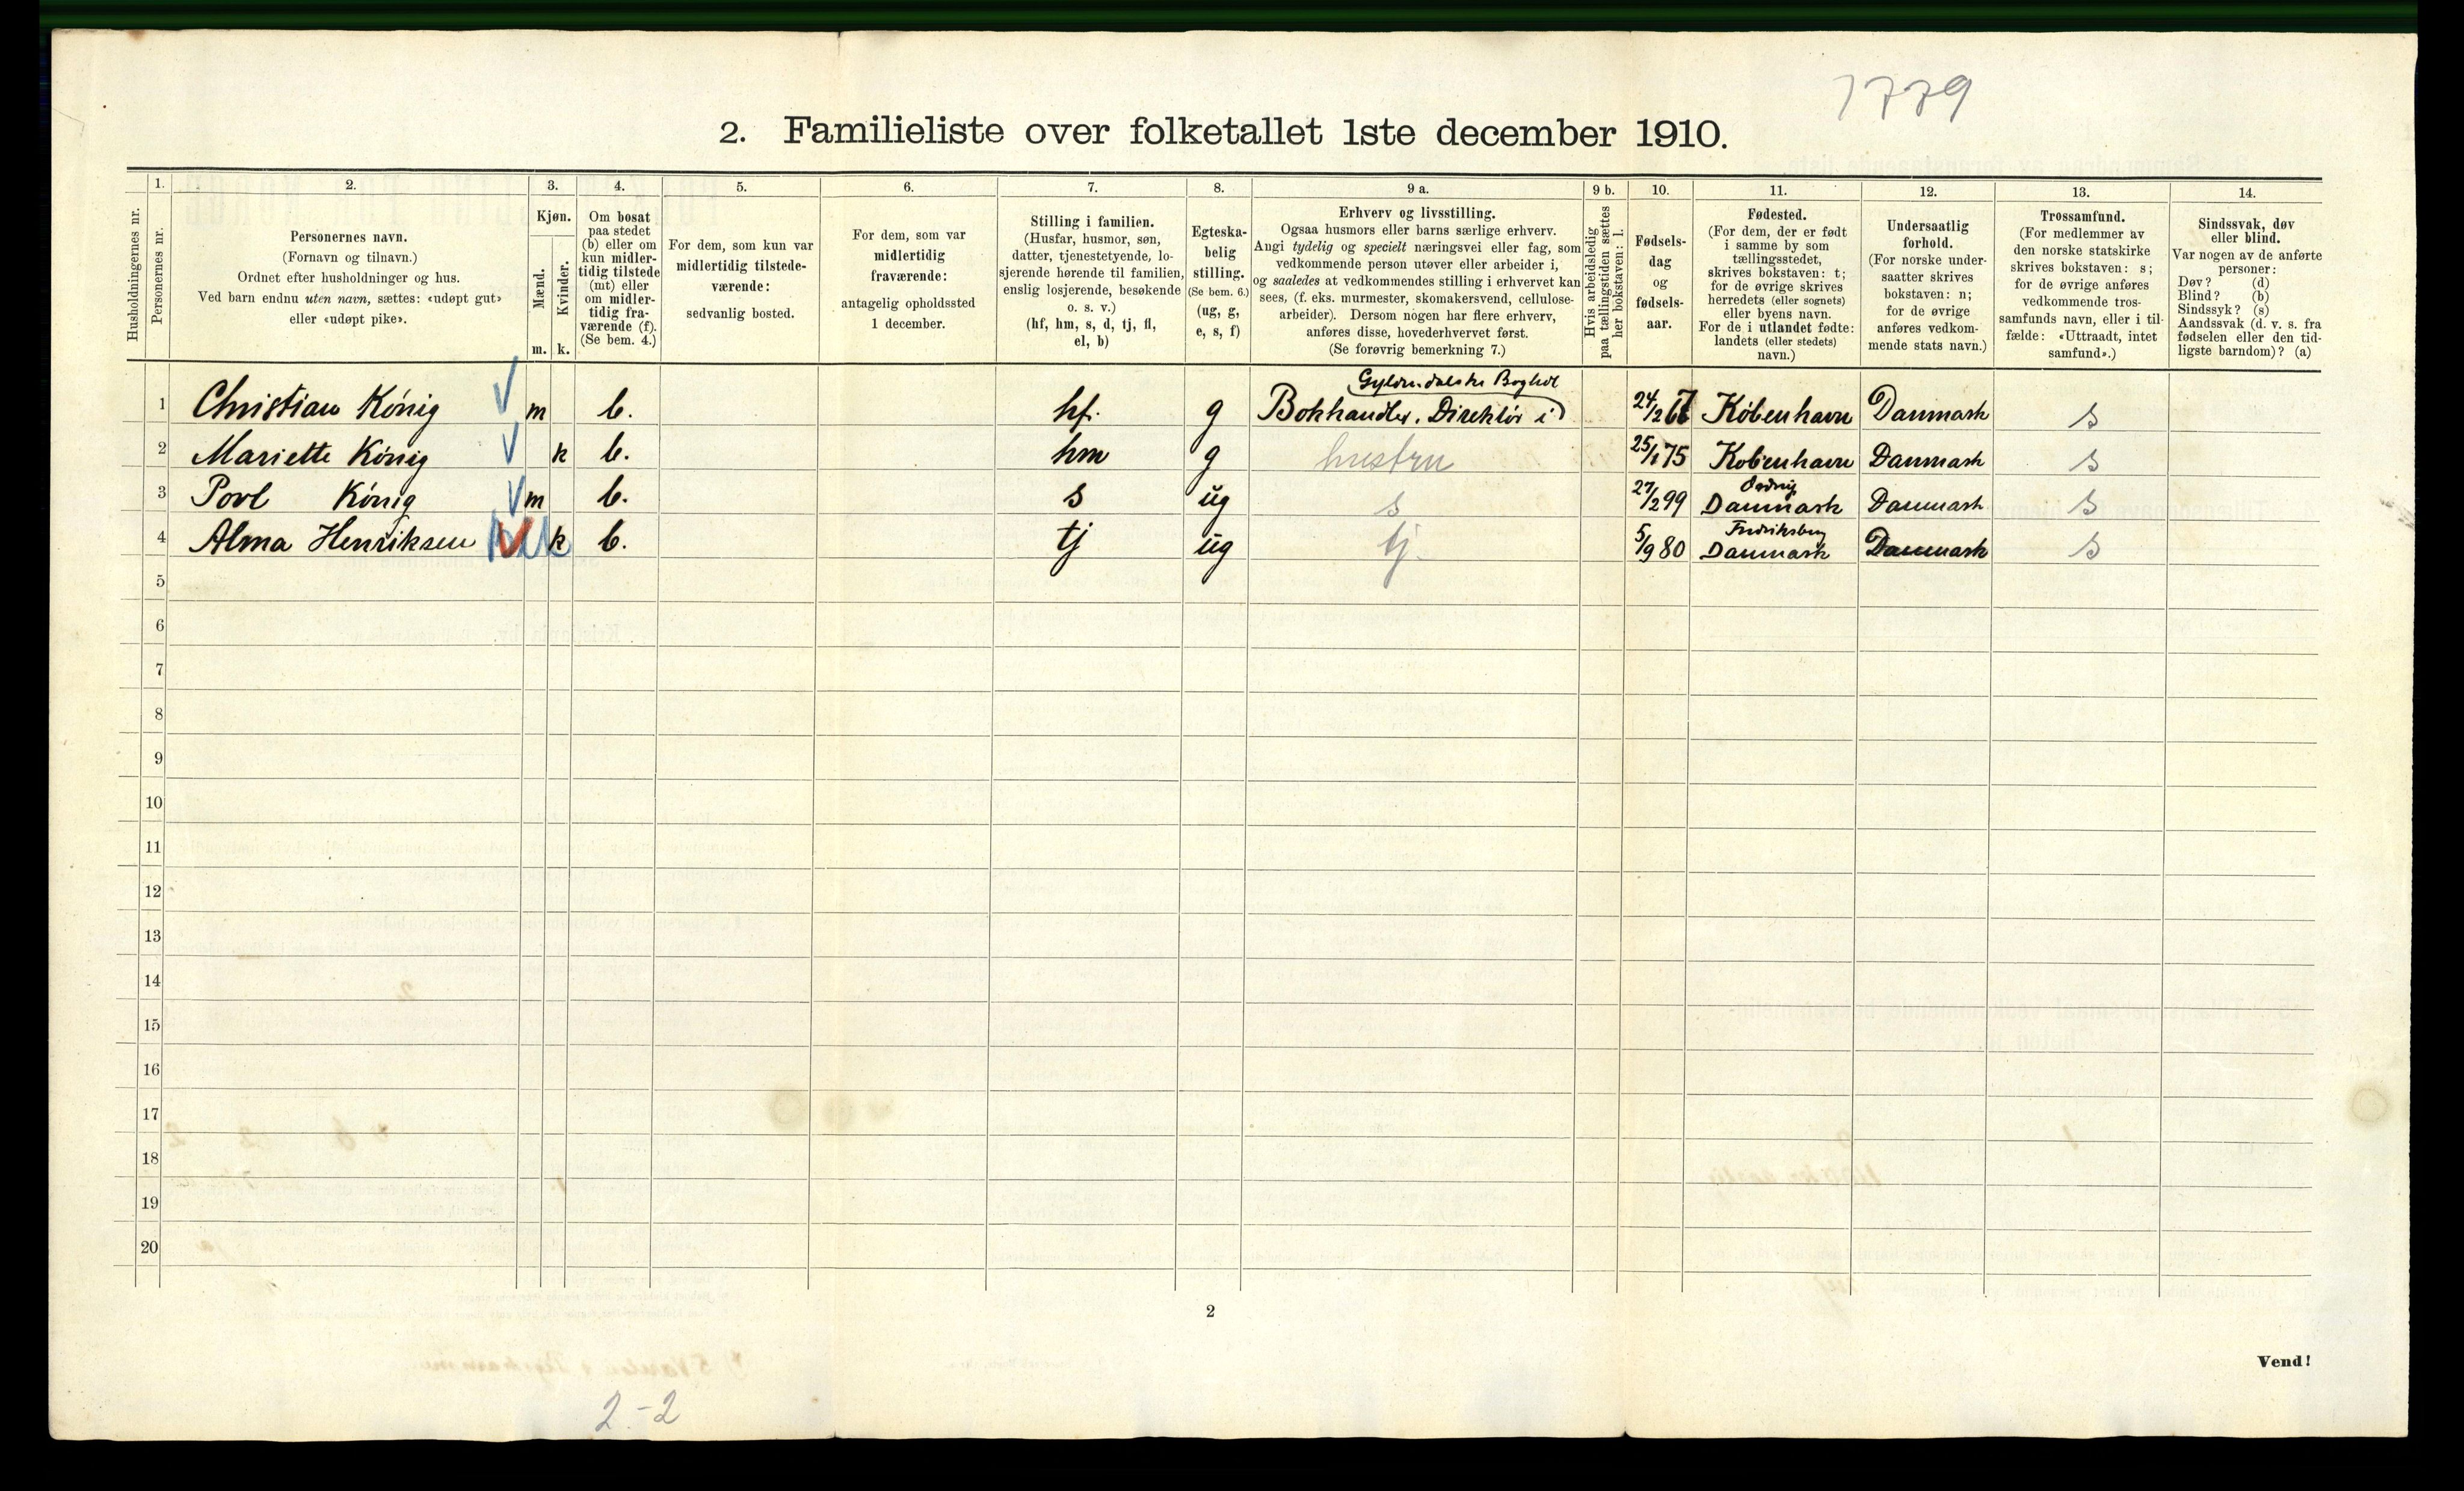 1779
2. Familieliste over folketallet 1ste december 1910.
Husholdningernes nr.
1.
Personernes nr.
2.
Personernes navn.
(Fornavn og tilnavn.)
Ordnet efter husholdninger og hus.
Ved barn endnu uten navn, sættes: «udøpt gut»
eller «udøpt pike».
3.
Kjøn.
Mænd.
Kvinder.
m. k.
4.
Om bosat
paa stedet
(b) eller om
kun midler-
tidig tilstede
(mt) eller
om midler-
tidig fra-
værende (f).
(Se bem. 4.)
5.
For dem, som kun var
midlertidig tilstede-
værende:
sedvanlig bosted.
6.
For dem, som var
midlertidig
fraværende:
antagelig opholdssted
1 december.
7.
Stilling i familien.
(Husfar, husmor, søn,
datter, tjenestetyende, lo-
sjerende hørende til familien,
enslig losjerende, besøkende
o. s. v.)
(hf, hm, s, d, tj, fl,
el, b)
8.
Egteska-
belig
stilling.
(Se bem. 6.)
(ug, g,
e, s, f)
9 a.
Erhverv og livsstilling.
Ogsaa husmors eller barns særlige erhverv.
Angi tydelig og specielt næringsvei eller fag, som
vedkommende person utøver eller arbeider i,
og saaledes at vedkommendes stilling i erhvervet kan
sees, (f. eks. murmester, skomakersvend, cellulose-
arbeider). Dersom nogen har flere erhverv,
anføres disse, hovederhvervet først.
(Se forøvrig bemerkning 7.)
9 b.
Hvis arbeidsledig
paa tællingstiden sættes
her bokstaven: l.
10.
Fødsels-
dag
og
fødsels-
aar.
11.
Fødested.
(For dem, der er født
i samme by som
tællingsstedet,
skrives bokstaven: t;
for de øvrige skrives
herredets (eller sognets)
eller byens navn.
For de i utlandet fødte:
landets (eller stedets)
navn.)
12.
Undersaatlig
forhold.
(For norske under-
saatter skrives
bokstaven: n;
for de øvrige
anføres vedkom-
mende stats navn.)
13.
Trossamfund.
(For medlemmer av
den norske statskirke
skrives bokstaven: s;
for de øvrige anføres
vedkommende tros-
samfunds navn, eller i til-
fælde: «Uttraadt, intet
samfund».)
14.
Sindssvak, døv
eller blind.
Var nogen av de anførte
personer:
Døv? (d)
Blind? (b)
Sindssyk? (s)
Aandssvak (d. v. s. fra
fødselen eller den tid-
ligste barndom)? (a)
Gyldendalske Boghdl
1 Christian König m b. hf. g Bokhandler. Direktör i 24/2 67 København Danmark s
2 Mariette König k b. hm g hustru 25/1 75 København Danmark s
3 Povl König m b. s ug s 27/2 99 Danmark Danmark s
Fredriksberg
4 Alma Henriksen k b. tj ug tj. 5/9 80 Danmark Danmark s
5
6
7
8
9
10
11
12
13
14
15
16
17
18
19
20
2
Vend!
2-2